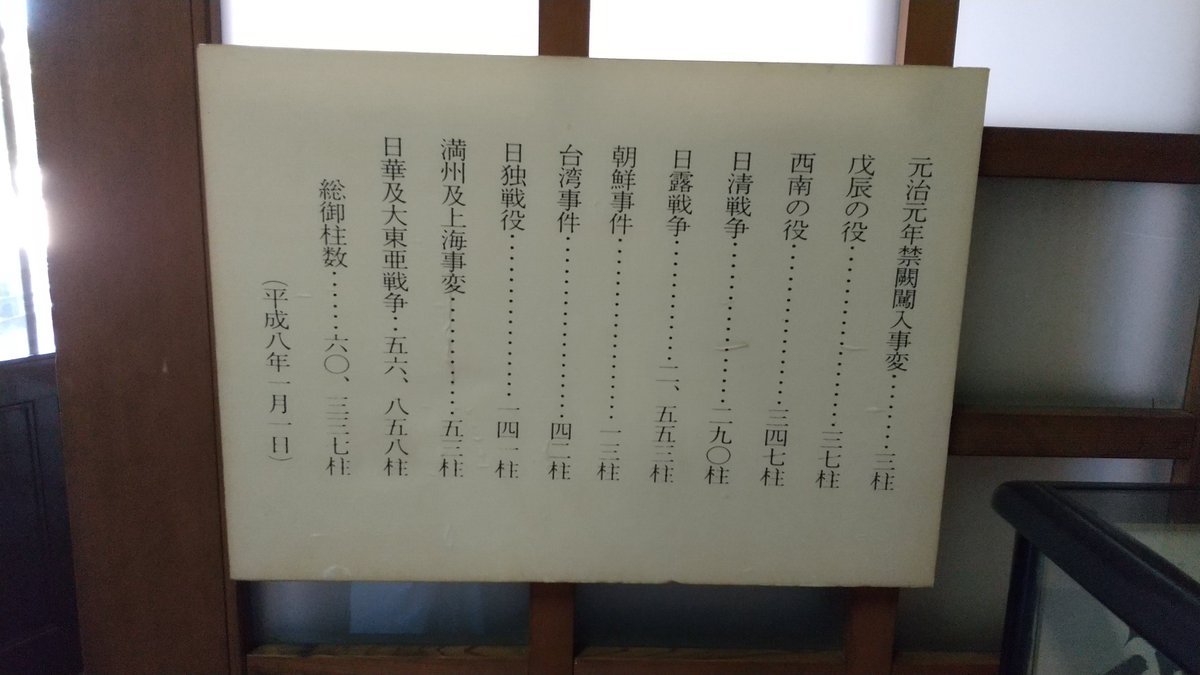 元治元年禁闕闖入事変………三柱
戊辰の役…………………三七柱
西南の役………………三四七柱
日清戦争………………二九〇柱
日露戦争…………二、五五三柱
朝鮮事件…………………一三柱
台湾事件…………………四二柱
日独戦役………………一四一柱
満州及上海事変…………五三柱
日華及大東亜戦争‥五六、八五八柱
総御柱数……六〇、三三七柱
(平成八年一月一日)